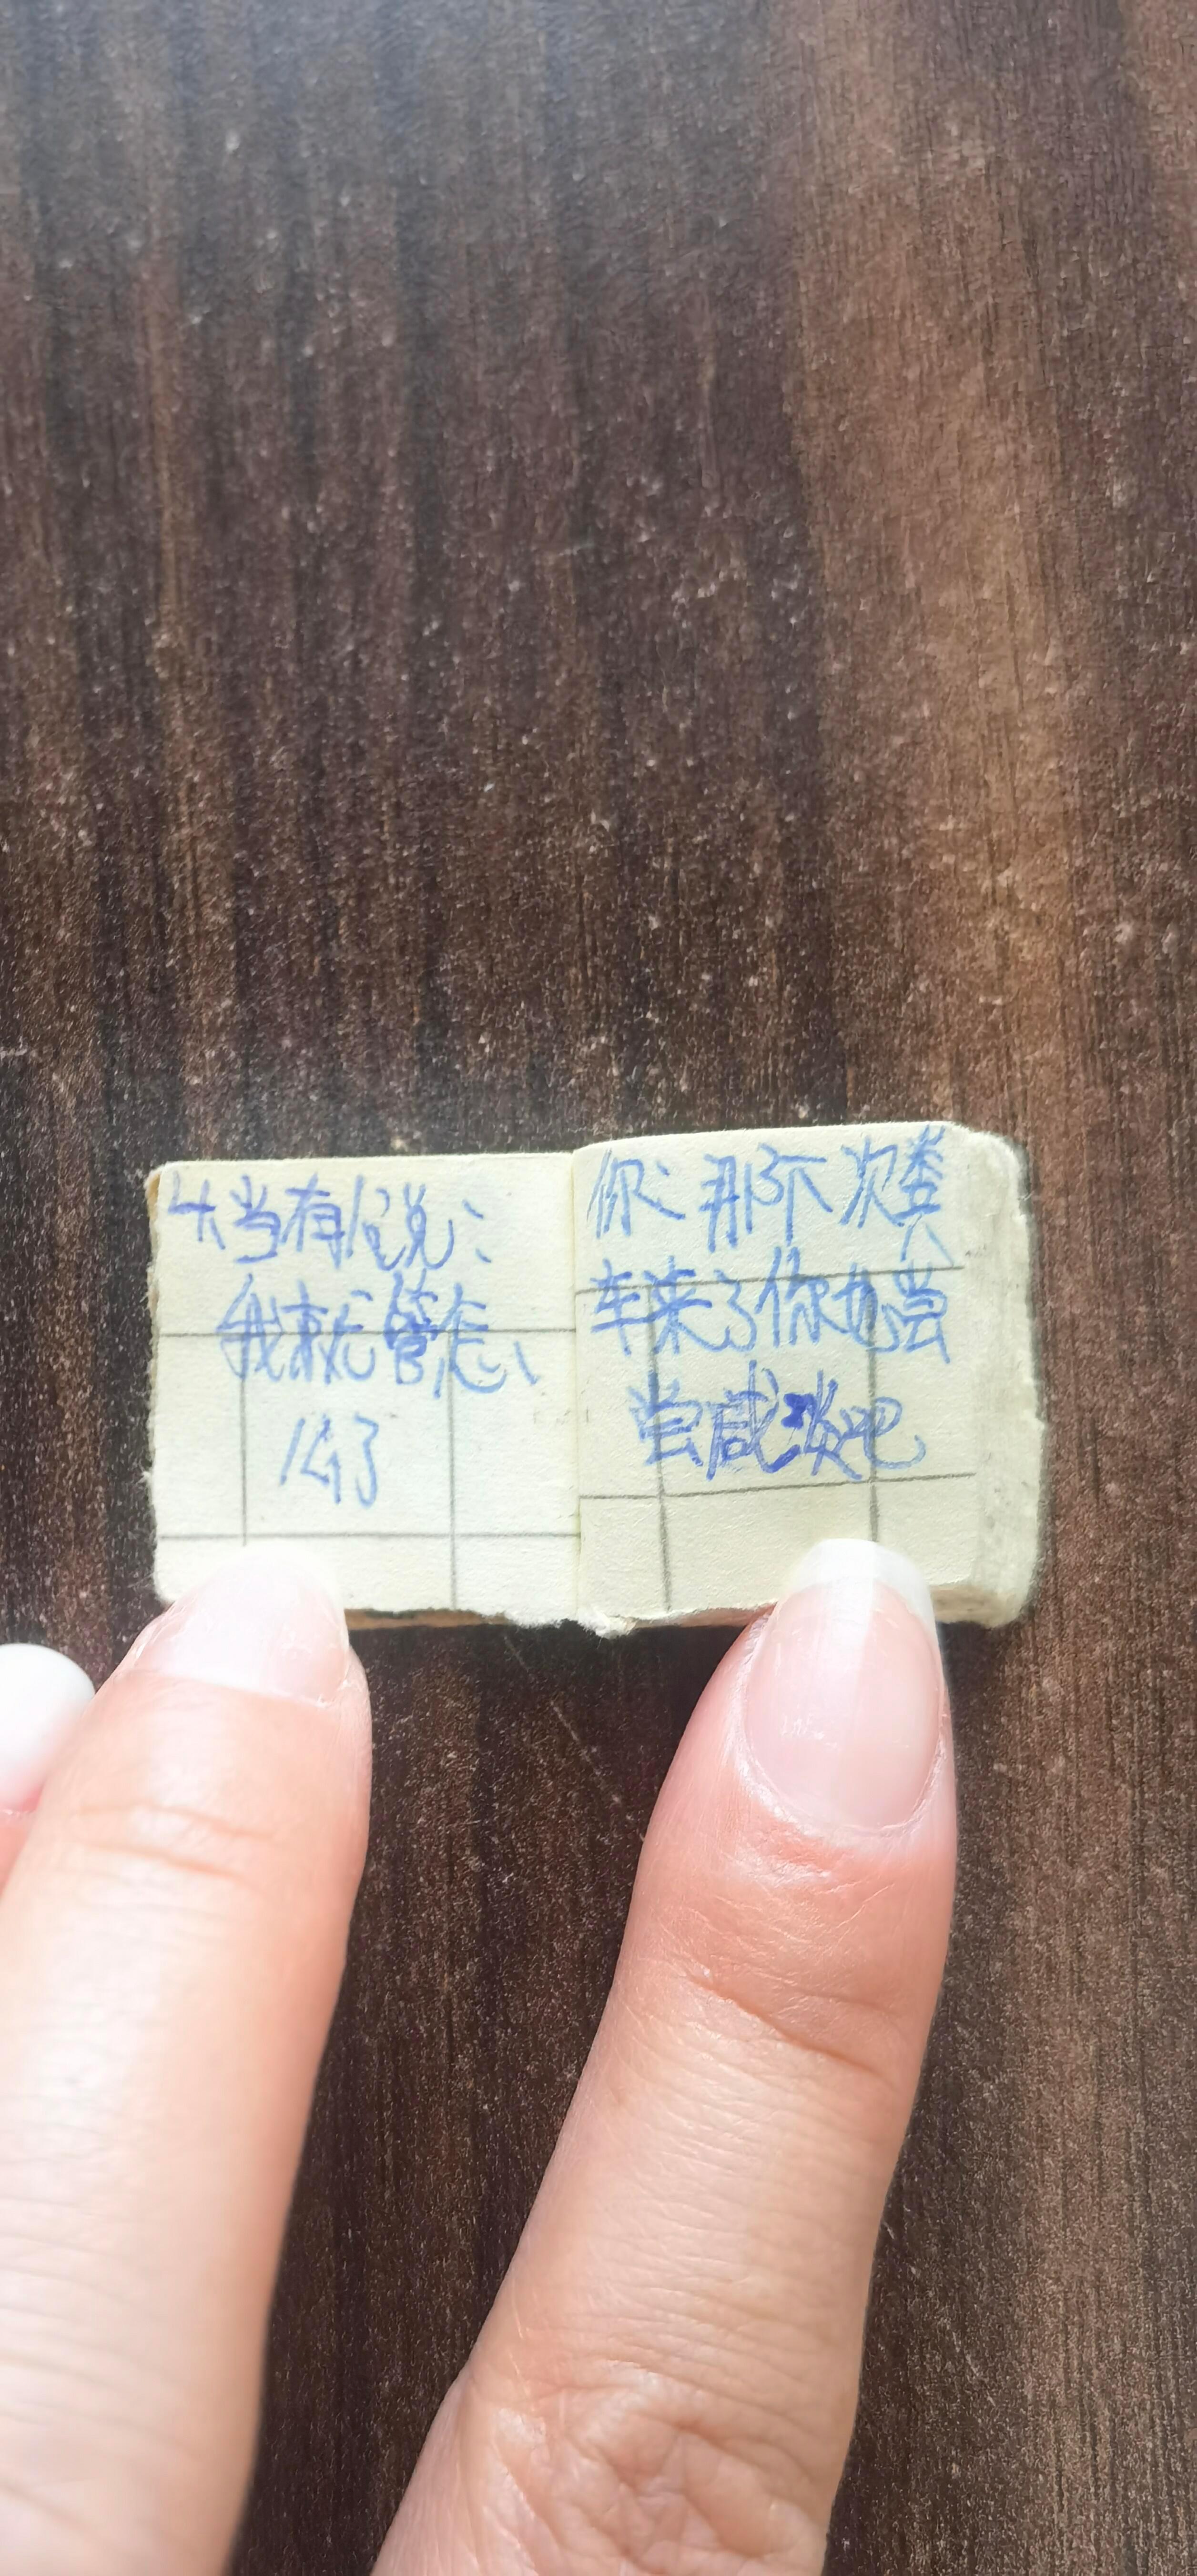 4、当有人说:
我就管怎
么了
你:那下次粪
车来了你也尝
尝咸淡吧